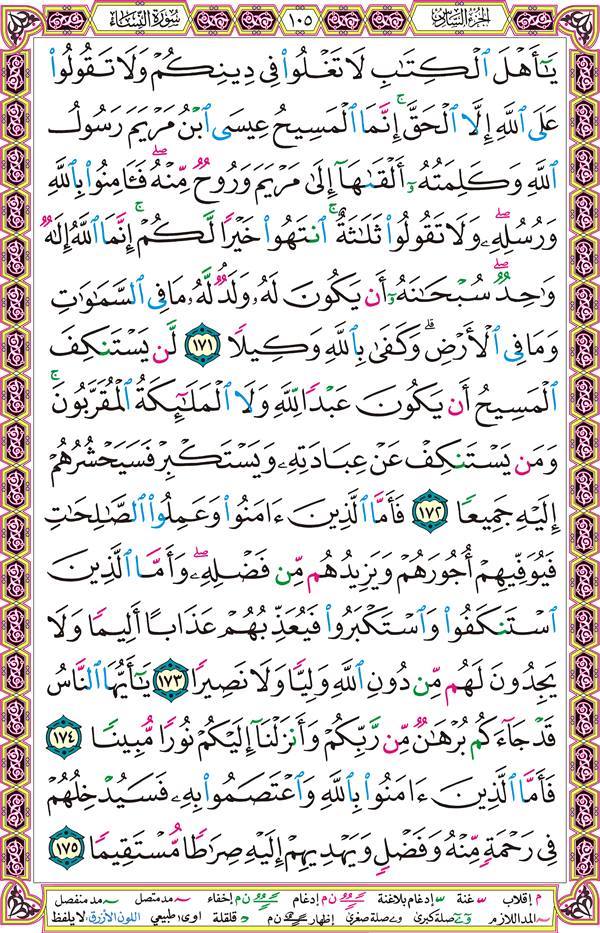 الجزء السادس
١٠٥
سورة النساء
يَٰٓأَهۡلَ ٱلۡكِتَٰبِ لَا تَغۡلُواْ فِي دِينِكُمۡ وَلَا تَقُولُواْ
عَلَى ٱللَّهِ إِلَّا ٱلۡحَقَّۚ إِنَّمَا ٱلۡمَسِيحُ عِيسَى ٱبۡنُ مَرۡيَمَ رَسُولُ
ٱللَّهِ وَكَلِمَتُهُۥٓ أَلۡقَىٰهَآ إِلَىٰ مَرۡيَمَ وَرُوحٞ مِّنۡهُۖ فَـَٔامِنُواْ بِٱللَّهِ
وَرُسُلِهِۦۖ وَلَا تَقُولُواْ ثَلَٰثَةٌۚ ٱنتَهُواْ خَيۡرٗا لَّكُمۡۚ إِنَّمَا ٱللَّهُ إِلَٰهٞ
وَٰحِدٞۖ سُبۡحَٰنَهُۥٓ أَن يَكُونَ لَهُۥ وَلَدٞۘ لَّهُۥ مَا فِي ٱلسَّمَٰوَٰتِ
وَمَا فِي ٱلۡأَرۡضِۗ وَكَفَىٰ بِٱللَّهِ وَكِيلٗا ١٧١ لَّن يَسۡتَنكِفَ
ٱلۡمَسِيحُ أَن يَكُونَ عَبۡدٗا لِّلَّهِ وَلَا ٱلۡمَلَٰٓئِكَةُ ٱلۡمُقَرَّبُونَۚ
وَمَن يَسۡتَنكِفۡ عَنۡ عِبَادَتِهِۦ وَيَسۡتَكۡبِرۡ فَسَيَحۡشُرُهُمۡ
إِلَيۡهِ جَمِيعٗا ١٧٢ فَأَمَّا ٱلَّذِينَ ءَامَنُواْ وَعَمِلُواْ ٱلصَّٰلِحَٰتِ
فَيُوَفِّيهِمۡ أُجُورَهُمۡ وَيَزِيدُهُم مِّن فَضۡلِهِۦۖ وَأَمَّا ٱلَّذِينَ
ٱسۡتَنكَفُواْ وَٱسۡتَكۡبَرُواْ فَيُعَذِّبُهُمۡ عَذَابًا أَلِيمٗا وَلَا
يَجِدُونَ لَهُم مِّن دُونِ ٱللَّهِ وَلِيّٗا وَلَا نَصِيرٗا ١٧٣ يَٰٓأَيُّهَا ٱلنَّاسُ
قَدۡ جَآءَكُم بُرۡهَٰنٞ مِّن رَّبِّكُمۡ وَأَنزَلۡنَآ إِلَيۡكُمۡ نُورٗا مُّبِينٗا ١٧٤
فَأَمَّا ٱلَّذِينَ ءَامَنُواْ بِٱللَّهِ وَٱعۡتَصَمُواْ بِهِۦ فَسَيُدۡخِلُهُمۡ
فِي رَحۡمَةٖ مِّنۡهُ وَفَضۡلٖ وَيَهۡدِيهِمۡ إِلَيۡهِ صِرَٰطٗا مُّسۡتَقِيمٗا ١٧٥
م إقلاب غنة إدغام بلاغنة ن م إدغام ن م إخفاء مد متصل مد منفصل
المد اللازم صلة كبرى صلة صغرى إظهار ن م قلقلة اوى طبيعي اللون الأزرق لا يلفظ